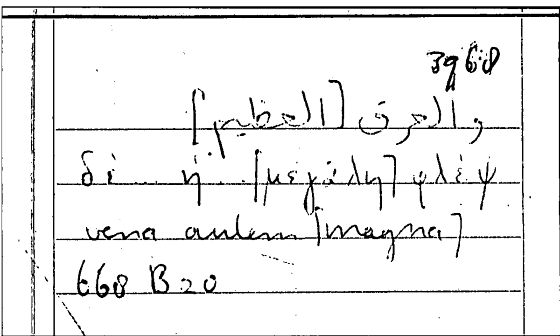 3968
والعرق [العظيم]
δὲ ἡ [μεγάλη] φλέψ
vena autem [magna]
668 B 20